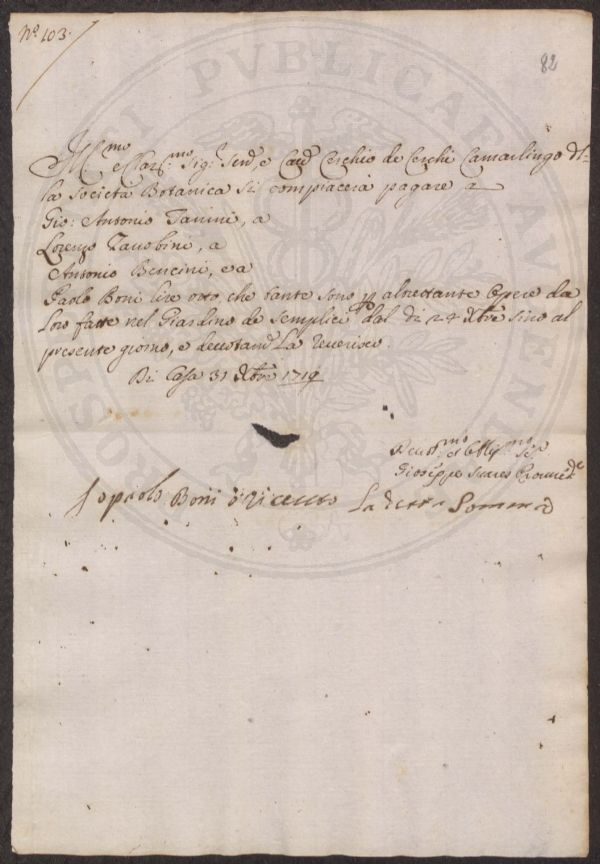 Nº. 103.
82
Ill.mo e Clar.mo Sig: Send, e Cav Cerchio de Cerchi Camarlingo del-
la Società Botanica Si compiacerà pagare a
Gio: Antonio Tanini, a
Lorenzo Zanobini, a
Antonio Bencini, e a
Paolo Boni lire otto che tante sono p altrettante Opere da
Loro fatte nel Giardino de Semplici dal di 24 Xbre sino al
presente giorno, e La reverisco.
Di Casa 31 Xbre 1719
Giuseppe
Io paolo Boni ò riceuto La detta Somma